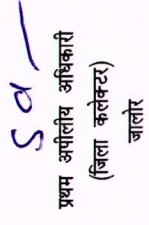 प्रथम अपीलीय अधिकारी
(जिला कलेक्टर)
जालोर